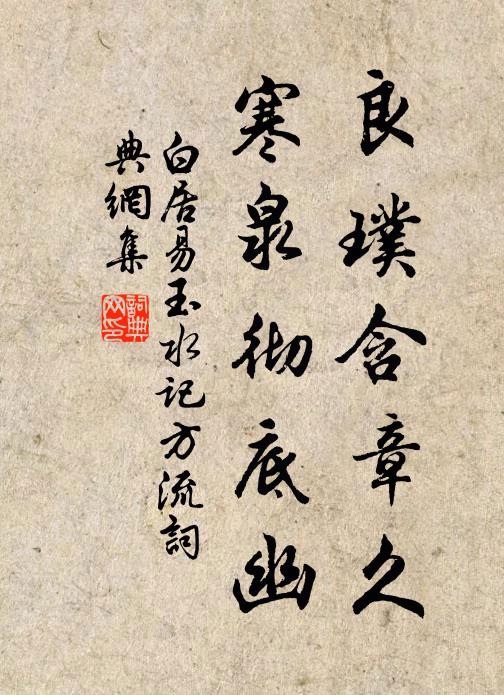 良璞含章久
寒泉彻底幽
白居易玉水记方流詞
典網集
詞典网印